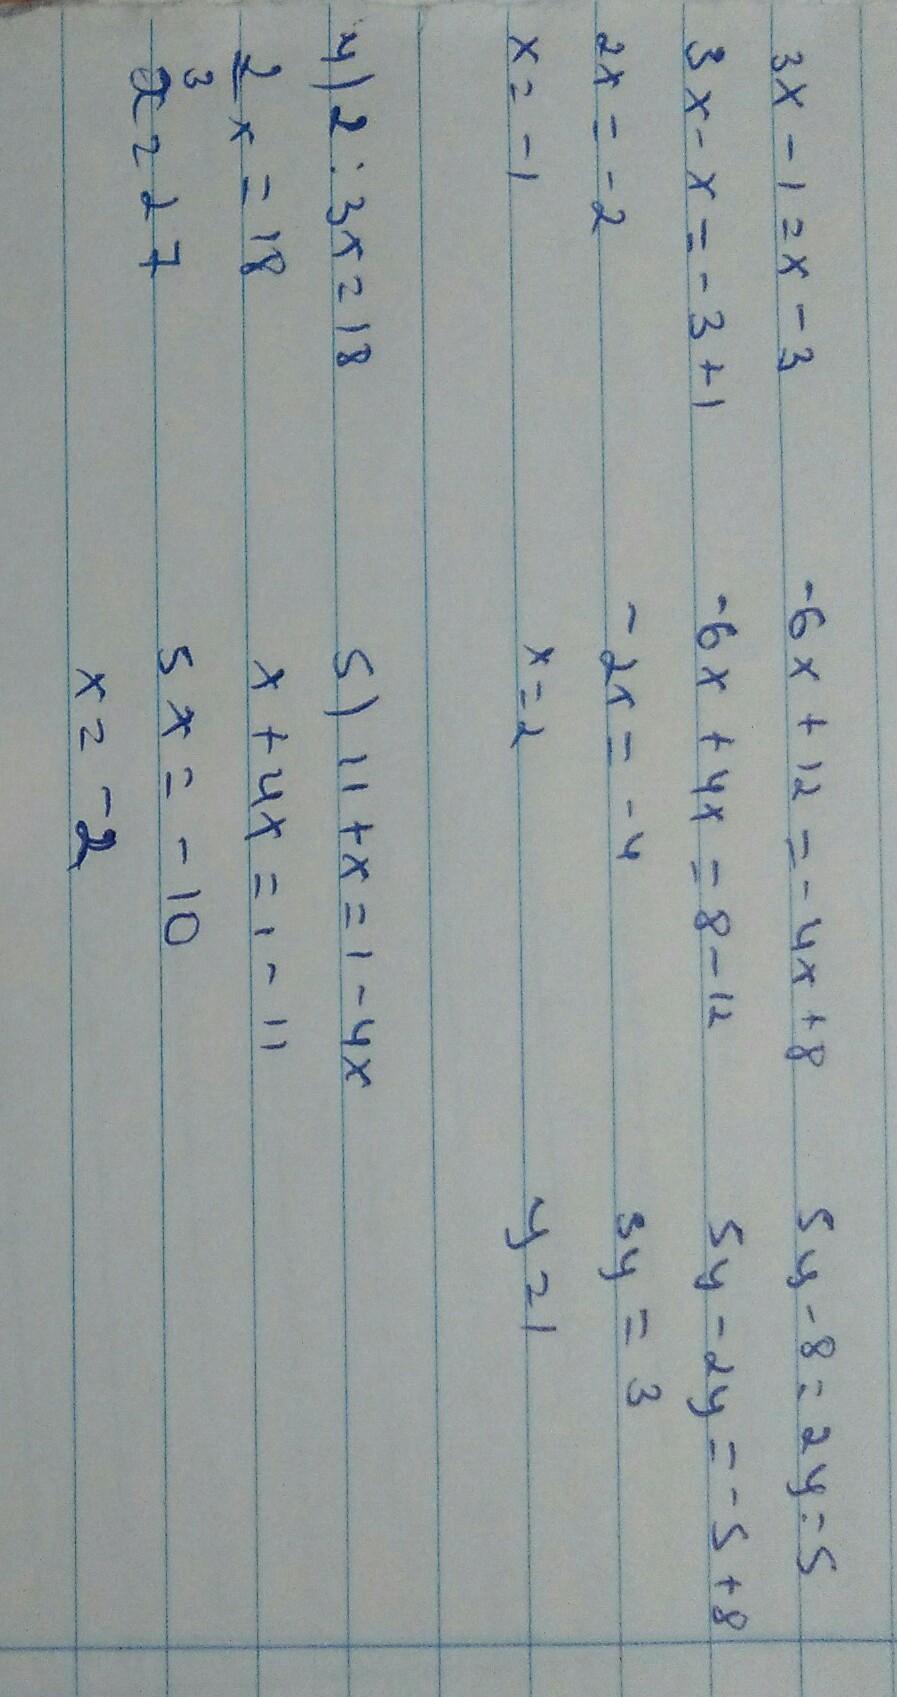 3x - 1 = x - 3
3x - x = - 3 + 1
2x = - 2
x = - 1
-6x + 12 = - 4x + 8
-6x + 4x = 8 - 12
- 2x = - 4
x = 2
5y - 8 = 2y - 5
5y - 2y = - 5 + 8
3y = 3
y = 1
4) 2 : 3x = 18
2/3 x = 18
x = 27
5) 11 + x = 1 - 4x
x + 4x = 1 - 11
5x = - 10
x = -2